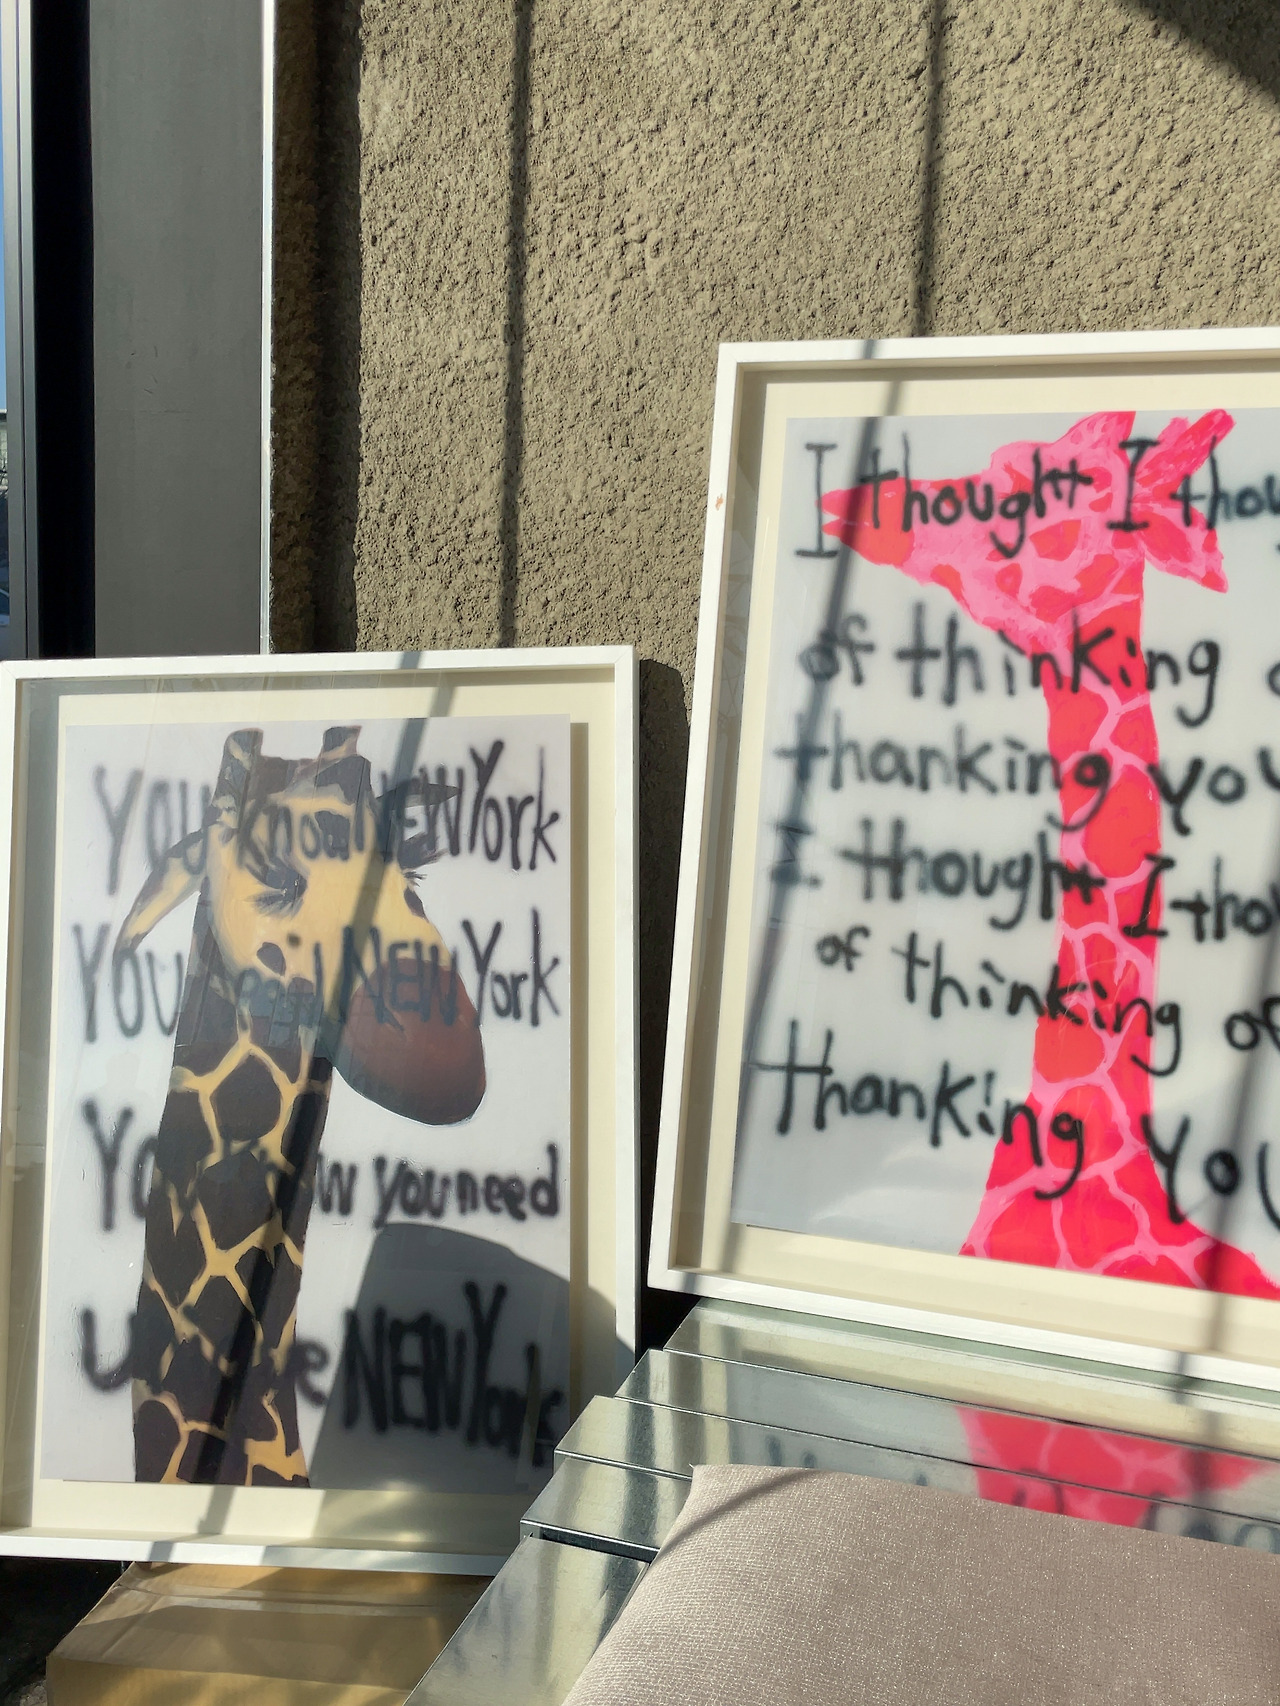 You know NEW York
You need NEW York
You know you need
NEW York
I thought I
of thinking
thanking you
I thought I
of thinking of
thanking you